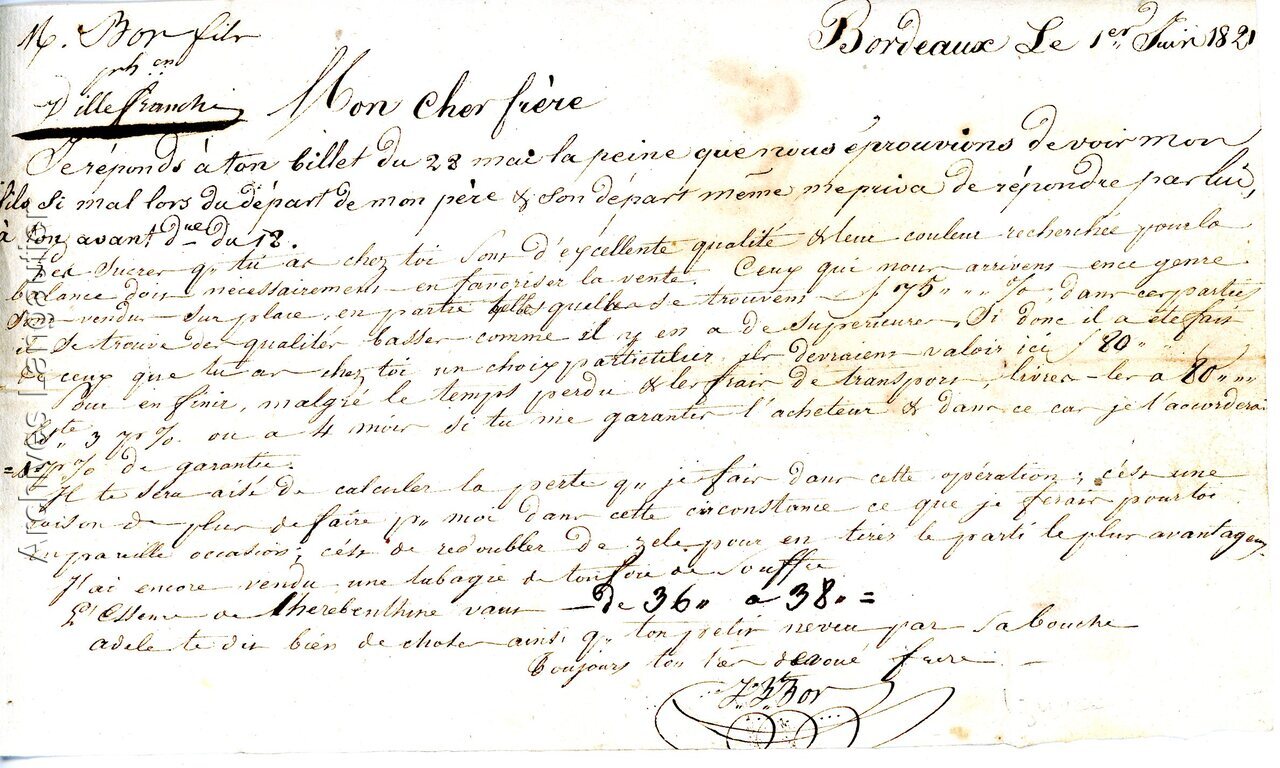 M. Bor fils
ph.en
Villefranche
Bordeaux Le 1er Juin 1821
Mon cher frère
Je réponds à ton billet du 28 mai la peine que nous éprouvions de voir mon
fils si mal lors du départ de mon père & son départ même me priva de répondre par lui,
à ton avant dre du 12.
Les sucres q. tu as chez toi sont d'excellente qualité & leur couleur recherchée pour la
balance doit nécessairement en favoriser la vente. Ceux qui nous arrivent en ce genre
sont vendus sur place, en partie telles quelles se trouvent f 75 " " " %, dans ces parties
il se trouve des qualités basses comme il y en a de supérieures, Si donc il a été fait
de ceux que tu as chez toi un choix particulier, ils devraient valoir ici f 80 "
en finir, malgré le temps perdu & les frais de transport, livres-les a 80 " " "
3 p % ou a 4 mois si tu me garantis l'acheteur & dans ce cas je t'accorderai
p % de garantie.
Il te sera aisé de calculer la perte q. je fais dans cette opération; c'est une
raison de plus de faire pr moi dans cette circonstance ce que je ferais pour toi
en pareille occasion; c'est de redoubler de zèle pour en tirer le parti le plus avantageux
J'ai encore vendu une de ton de souffre
L'Essence de therebenthine vaut — de 36 " a 38 " =
adele te dit bien de choses ainsi q. ton petit neveu par sa bouche
Toujours ton bien devoué frere —
Bor
Archives Lanéoutisr